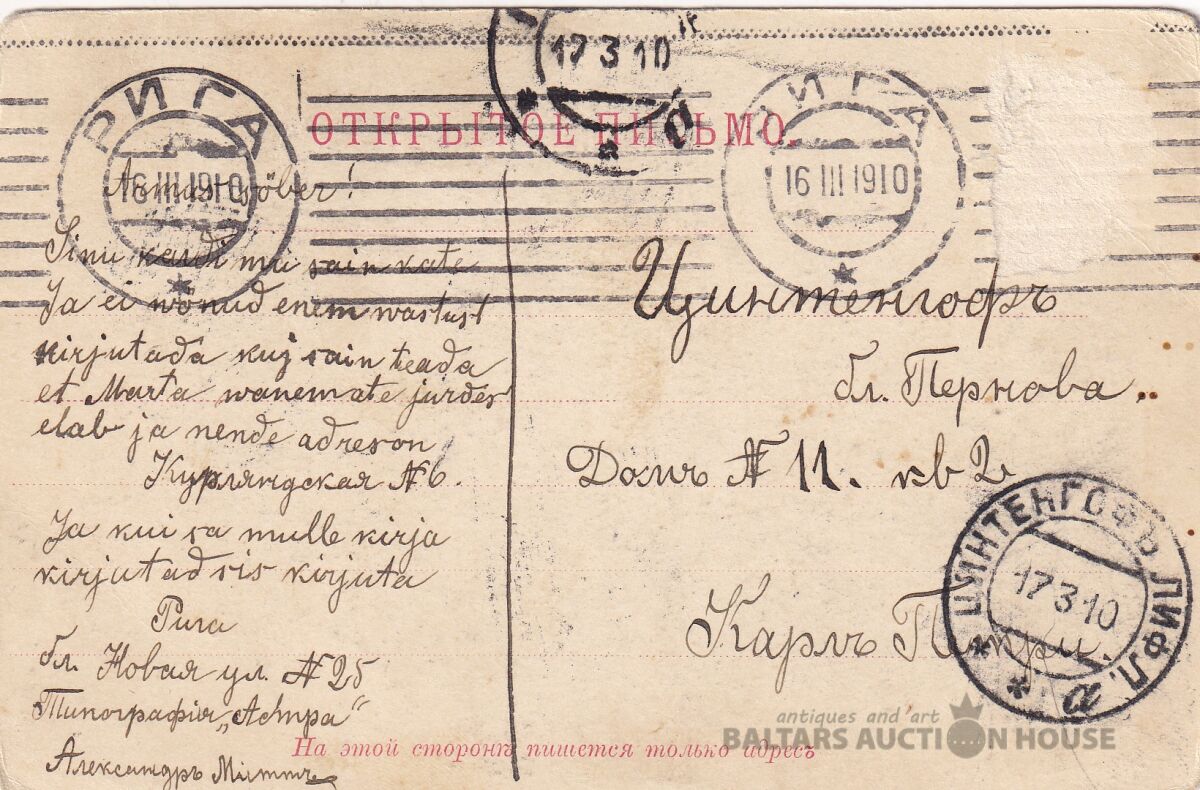 17 3 10
а
РИГА
16 III 1910
РИГА
16 III 1910
ОТКРЫТОЕ ПИСЬМО.
Armas sõber!
Sinu kardi ma sain kate
Ja ei wõnud enem wastust
kirjutada kuj sain teada
et Marta wanemate jurdes
elab ja nende adres on
Курляндская № 6.
Ja kui sa mulle kirja
kirjutad sis kirjuta
Рига
бл. Новая ул. № 25
Типографія „Астра“
Александръ
Цинтенгофъ
бл. Пернова.
Домъ № 11. кв 2
Карлъ
ЦИНТЕНГОФЪ ЛИФЛ.
17 3 10
а
На этой сторонѣ пишется только адресъ
antiques and art
BALTARS AUCTION HOUSE